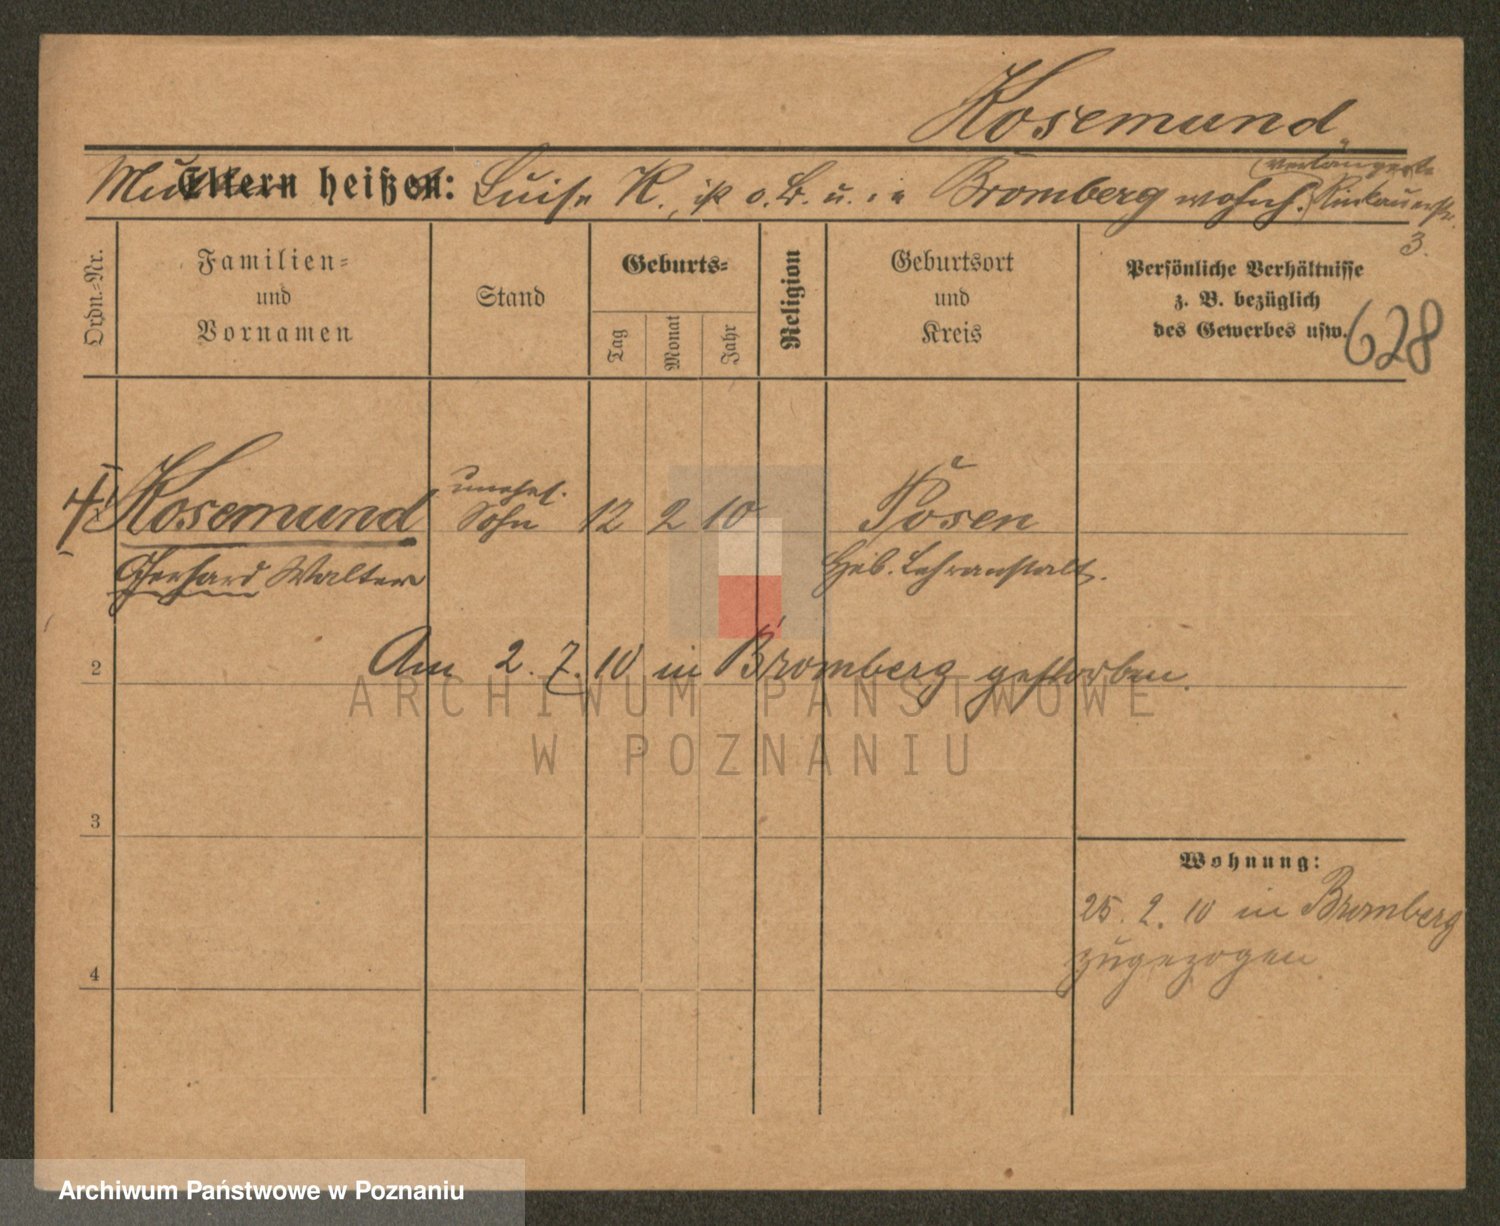 Rosemund
Mutter Eltern heißen: Luise R., ist o. B. u. in Bromberg wohnh. (verlängerte
Rinkauerstr.
3.
Ordn.-Nr.
Familien-
und
Vornamen
Stand
Geburts-
Tag
Monat
Jahr
Religion
Geburtsort
und
Kreis
Persönliche Verhältnisse
z. B. bezüglich
des Gewerbes usw.
628
1
Rosemund
unehel.
Sohn
12 2 10
Posen
Gerhard Walter
Heb. Lehranstalt.
Am 2. 7. 10 in Bromberg gestorben.
2
ARCHIWUM PAŃSTWOWE
W POZNANIU
3
Wohnung:
25. 2. 10 in Bromberg
zugezogen
4
Archiwum Państwowe w Poznaniu